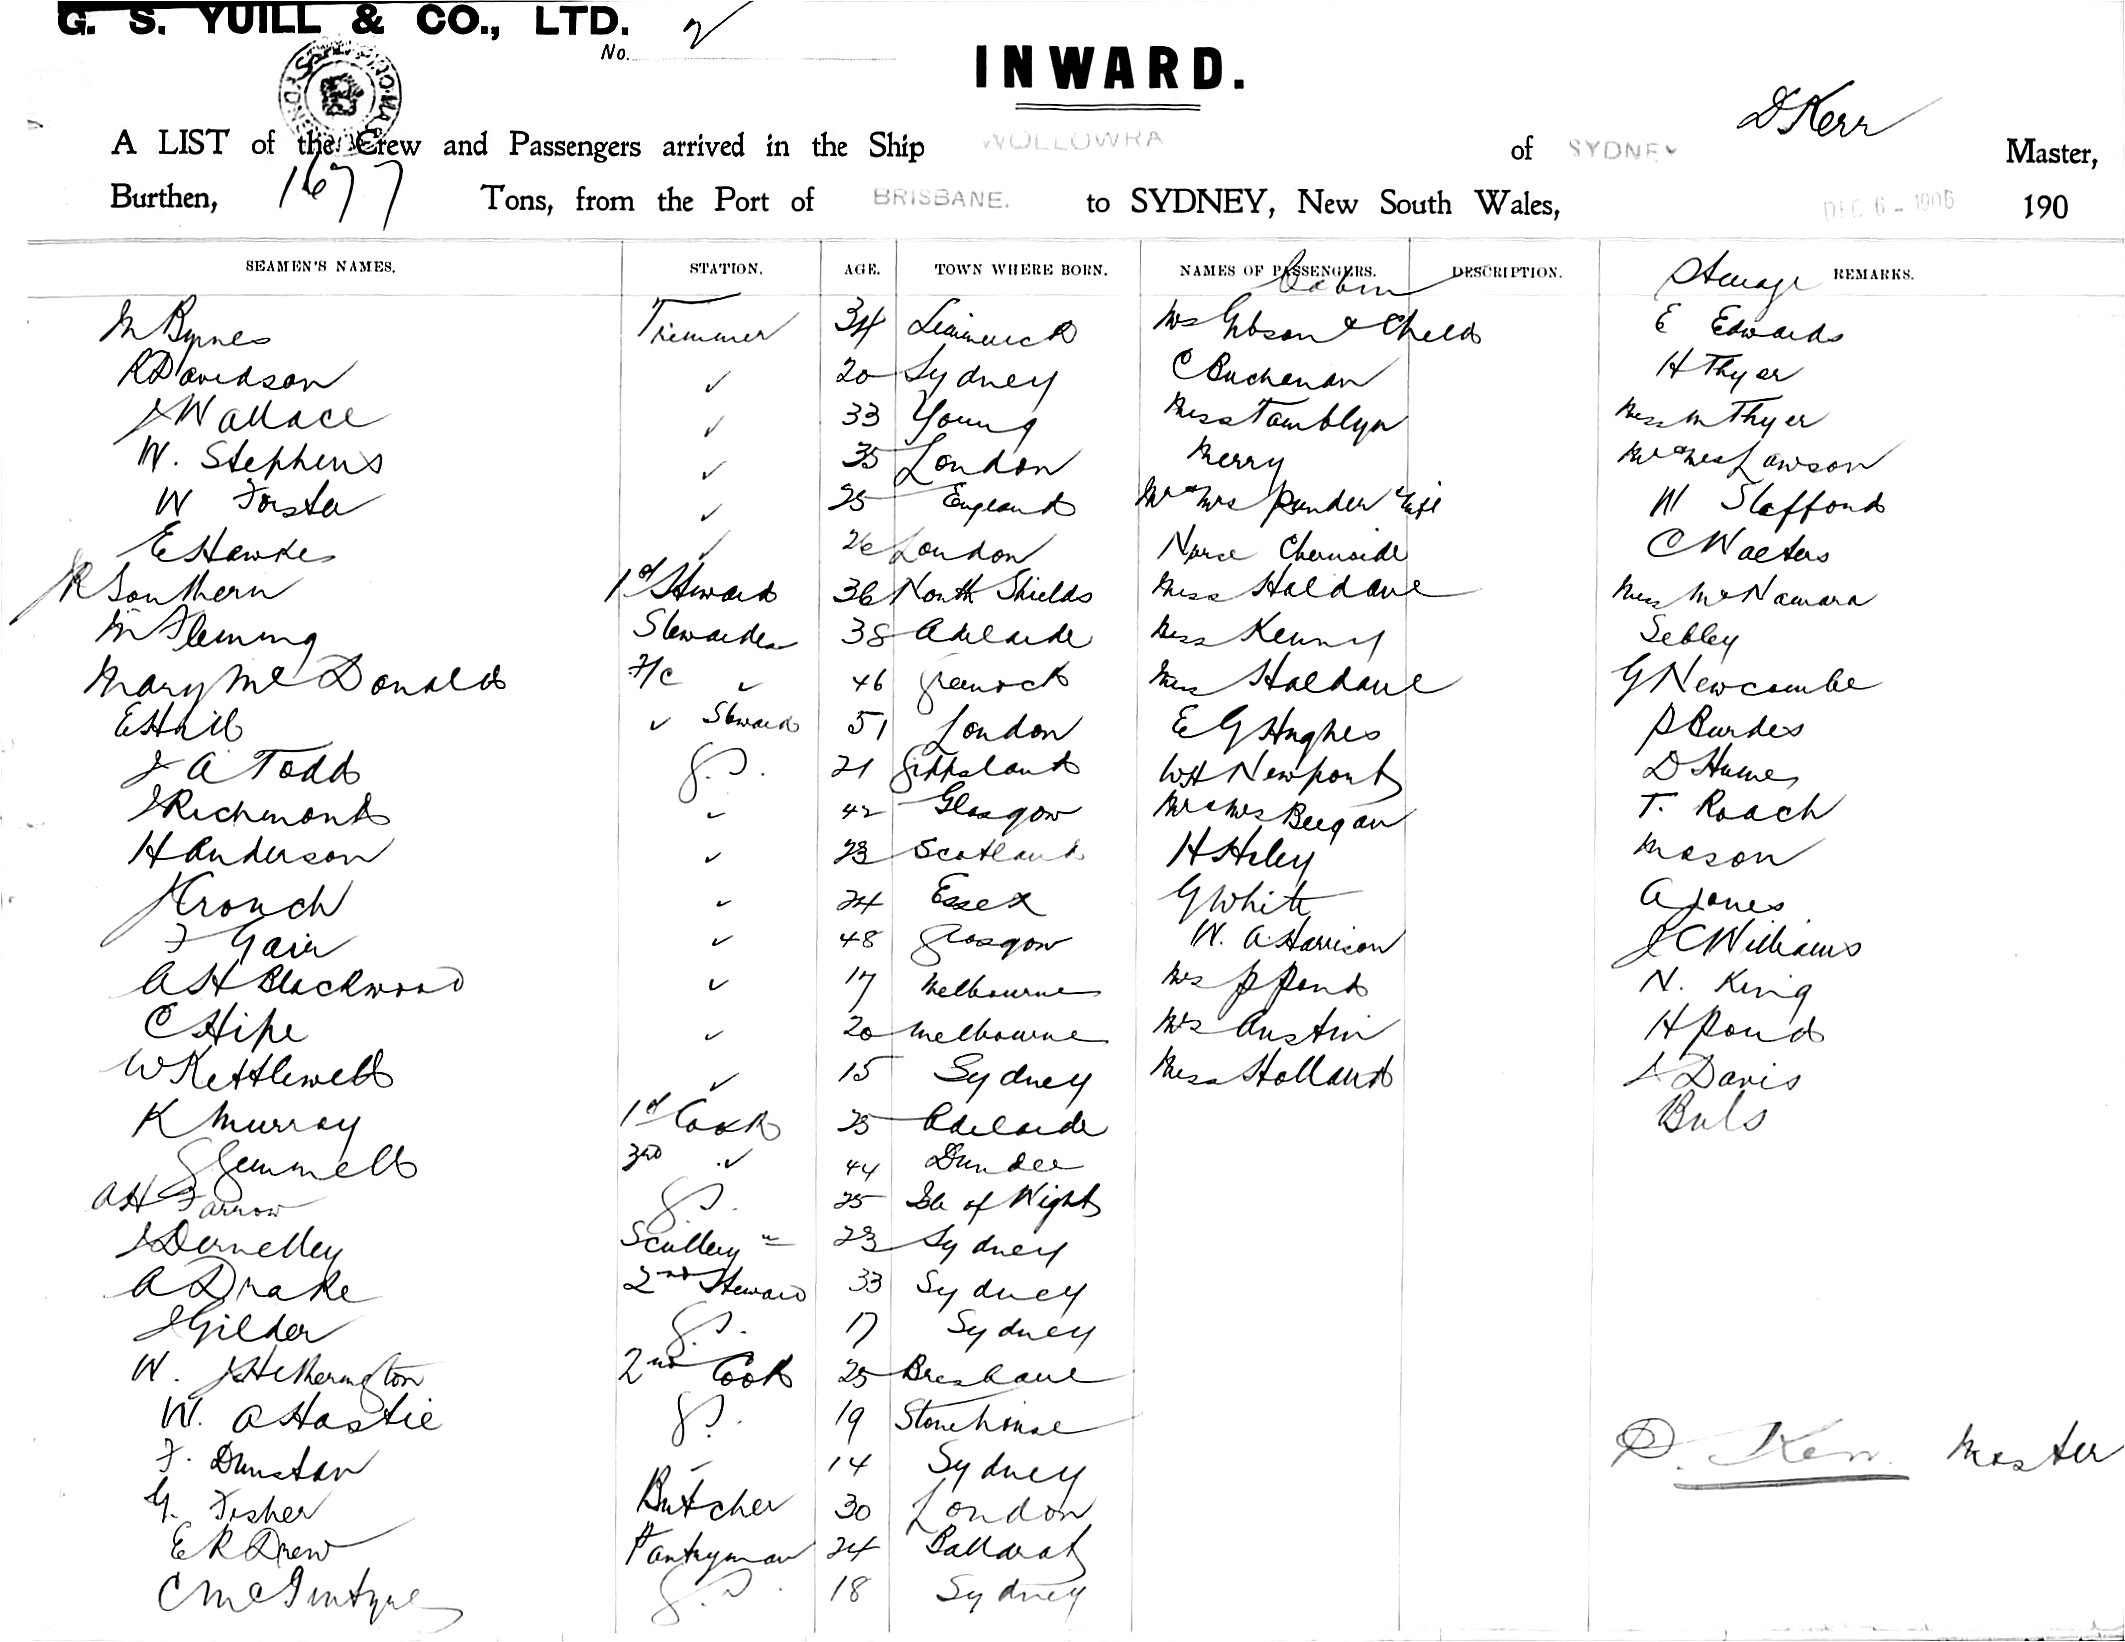 G. S. YUILL & CO., LTD.
No. 2
INWARD.
D Kerr
A LIST of the Crew and Passengers arrived in the Ship WOLLOWRA of SYDNEY Master,
Burthen, 1677 Tons, from the Port of BRISBANE. to SYDNEY, New South Wales, DEC 6 - 1906 190
SEAMEN'S NAMES. STATION. AGE. TOWN WHERE BORN. NAMES OF PASSENGERS. DESCRIPTION. REMARKS.
Cabin Steerage
M Byrnes Trimmer 34 Limerick Mrs Gibson & Child E Edwards
R Davidson ✓ 20 Sydney C Buchanan H Thyer
J Wallace ✓ 33 Young Miss Tamblyn Miss M Thyer
W. Stephens ✓ 35 London Merry Mr & Mrs Lawson
W Forster ✓ 25 England Mr & Mrs Ponder W Stafford
E Hawke ✓ 26 London Nurse Chernside C Walters
J R Southern 1st Steward 36 North Shields Miss Haldane Miss McNamara
M Fleming Stewardess 38 Adelaide Miss Kenny Sebley
Mary McDonald F/C ✓ 46 Greenock Miss Haldane G Newcombe
E Hill ✓ Steward 51 London E G Hughes
J A Todd G.S. 21 Gippsland W H Newport D Hume
J Richmond ✓ 42 Glasgow Mr & Mrs Beegan T. Roach
H Anderson ✓ 23 Scotland H Hiley Mason
J Crouch ✓ 24 Essex G White A Jones
F Gair ✓ 48 Glasgow W. A. Harrison J C Williams
A H Blackwood ✓ 17 Melbourne Mrs P Pond N. King
C Hipe ✓ 20 Melbourne Mrs Austin H Pond
W Kettlewell ✓ 15 Sydney Miss Holland J Davis
K Murray 1st Cook 25 Adelaide Buls
G Gemmell 3rd ✓ 44 Dundee
A H Farrow G.S. 25 Isle of Wight
J Dernelley Scullery " 23 Sydney
A Drake 2nd Steward 33 Sydney
J Gilder G.S. 17 Sydney
W. J Hetherington 2nd Cook 25 Brisbane
W. A Hastie G.S. 19 Stonehouse
F. Dunstan ✓ 14 Sydney D. Kerr Master
G. Fisher Butcher 30 London
E R Drew Pantryman 24 Ballarat
C McIntyre G.S. 18 Sydney